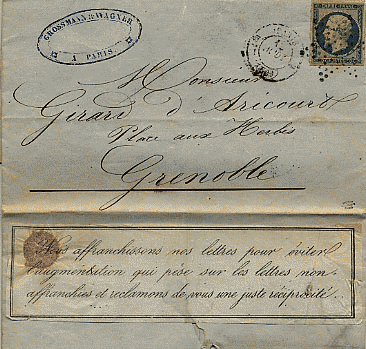 GROSSMANN & WAGNER
A PARIS.
EMPIRE FRANC
Monsieur
Girard d'Aricourt
Place aux Herbes
Grenoble
Nous affranchissons nos lettres pour éviter
l'augmentation qui pèse sur les lettres non
affranchies et réclamons de vous une juste réciprocité.